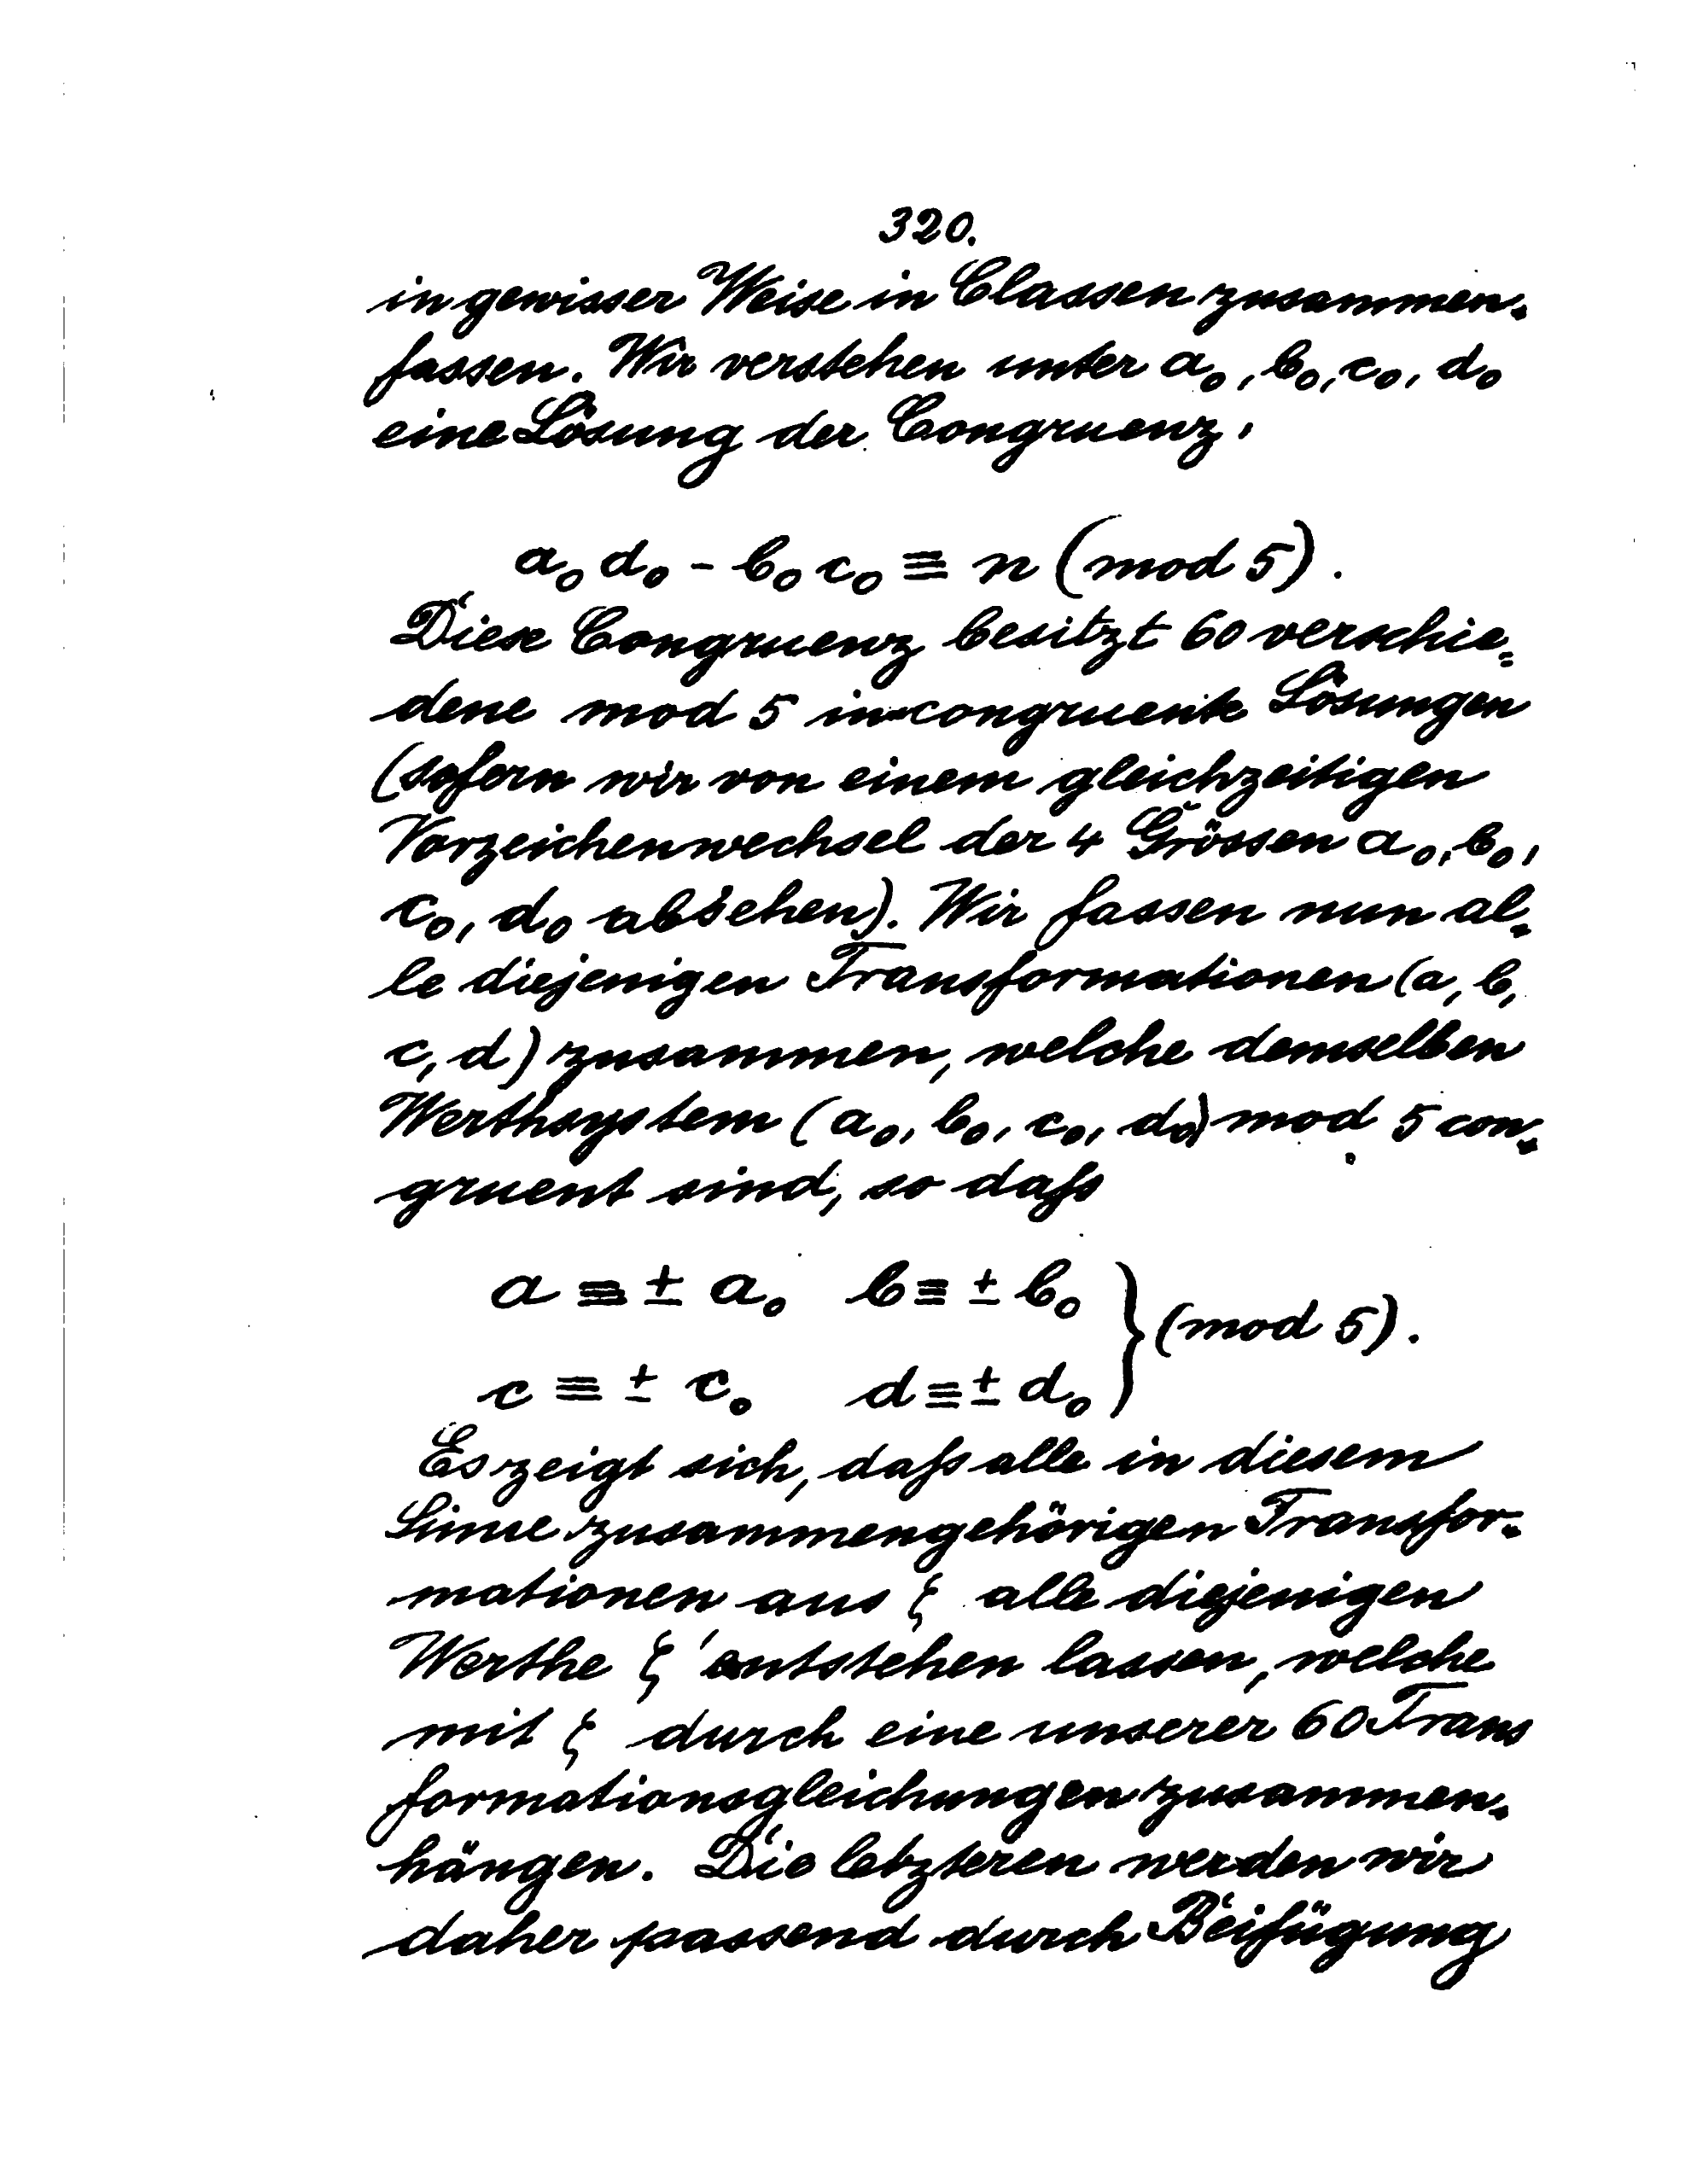 320.
in gewisser Weise in Classen zusammen-
fassen. Wir verstehen unter a₀, b₀, c₀, d₀
eine Lösung der Congruenz,
a₀ d₀ - b₀ c₀ ≡ n (mod 5).
Diese Congruenz besitzt 60 verschie-
dene mod 5 incongruente Lösungen
(sofern wir von einem gleichzeitigen
Vorzeichenwechsel der 4 Grössen a₀, b₀,
c₀, d₀ absehen). Wir fassen nun al-
le diejenigen Transformationen (a, b,
c, d) zusammen, welche demselben
Werthsystem (a₀, b₀, c₀, d₀) mod 5 con-
gruent sind, so daſs
a ≡ ± a₀ b ≡ ± b₀ } (mod 5).
c ≡ ± c₀ d ≡ ± d₀
Es zeigt sich, daſs alle in diesem
Sinne zusammengehörigen Transfor-
mationen aus ζ alle diejenigen
Werthe ζ' entstehen lassen, welche
mit ζ durch eine unserer 60 Trans
formationsgleichungen zusammen-
hängen. Die letzteren werden wir
daher passend durch Beifügung